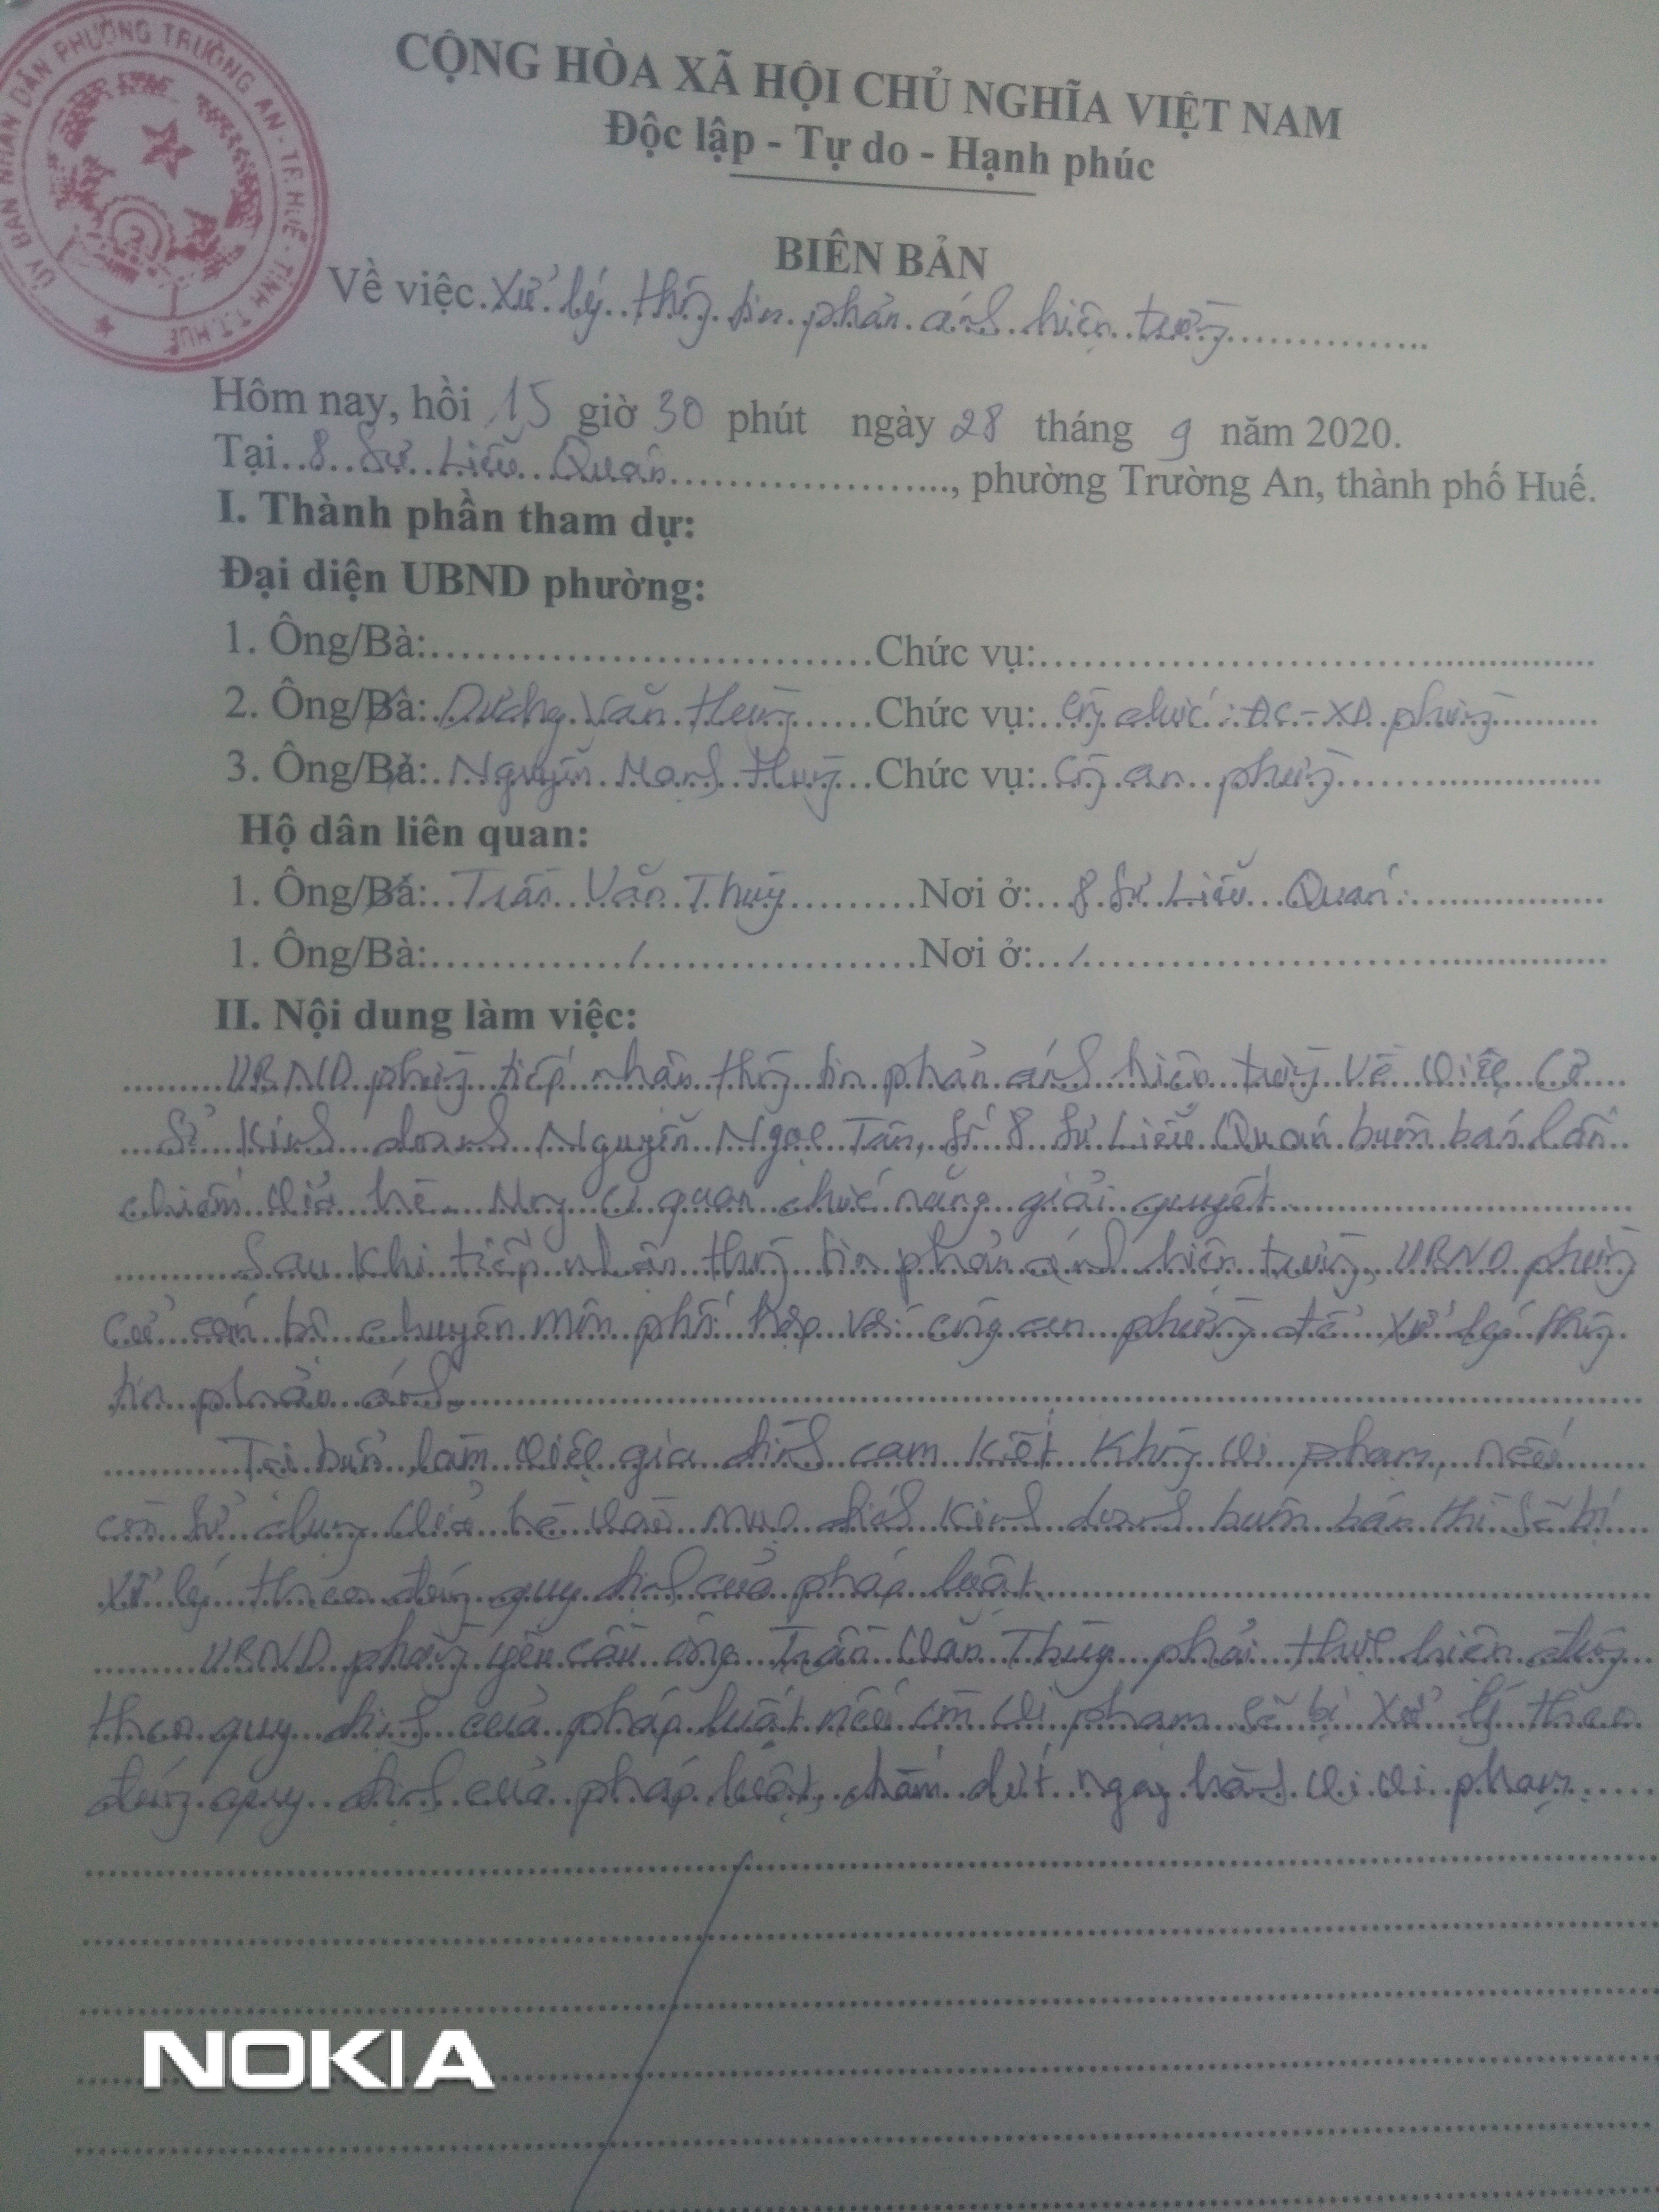 ỦY BAN NHÂN DÂN PHƯỜNG TRƯỜNG AN - TP. HUẾ - TỈNH T.T. HUẾ
CỘNG HÒA XÃ HỘI CHỦ NGHĨA VIỆT NAM
Độc lập - Tự do - Hạnh phúc
BIÊN BẢN
Về việc. Xử lý thông tin phản ánh hiện trường
Hôm nay, hồi 15 giờ 30 phút ngày 28 tháng 9 năm 2020.
Tại 8 Sư Liễu Quán, phường Trường An, thành phố Huế.
I. Thành phần tham dự:
Đại diện UBND phường:
1. Ông/Bà: Chức vụ:
2. Ông/Bà: Dương Văn Chức vụ: Công chức: ĐC-XD phường
3. Ông/Bà: Nguyễn Mạnh Chức vụ: Công an phường
Hộ dân liên quan:
1. Ông/Bà: Trần Văn Thùy Nơi ở: 8 Sư Liễu Quán
1. Ông/Bà: / Nơi ở: /
II. Nội dung làm việc:
UBND phường tiếp nhận thông tin phản ánh hiện trường về việc cơ
sở kinh doanh Nguyễn Ngọc Tân, số 8 Sư Liễu Quán buôn bán lấn
chiếm vỉa hè. Mong cơ quan chức năng giải quyết
Sau khi tiếp nhận thông tin phản ánh hiện trường, UBND phường
cử cán bộ chuyên môn phối hợp với công an phường để xử lý thông
tin phản ánh.
Tại buổi làm việc gia đình cam kết không vi phạm, nếu
còn sử dụng vỉa hè vào mục đích kinh doanh buôn bán thì sẽ bị
xử lý theo đúng quy định của pháp luật
UBND phường yêu cầu ông Trần Văn Thùy phải thực hiện đúng
theo quy định của pháp luật nếu còn vi phạm sẽ bị xử lý theo
đúng quy định của pháp luật, chấm dứt ngay hành vi vi phạm
NOKIA